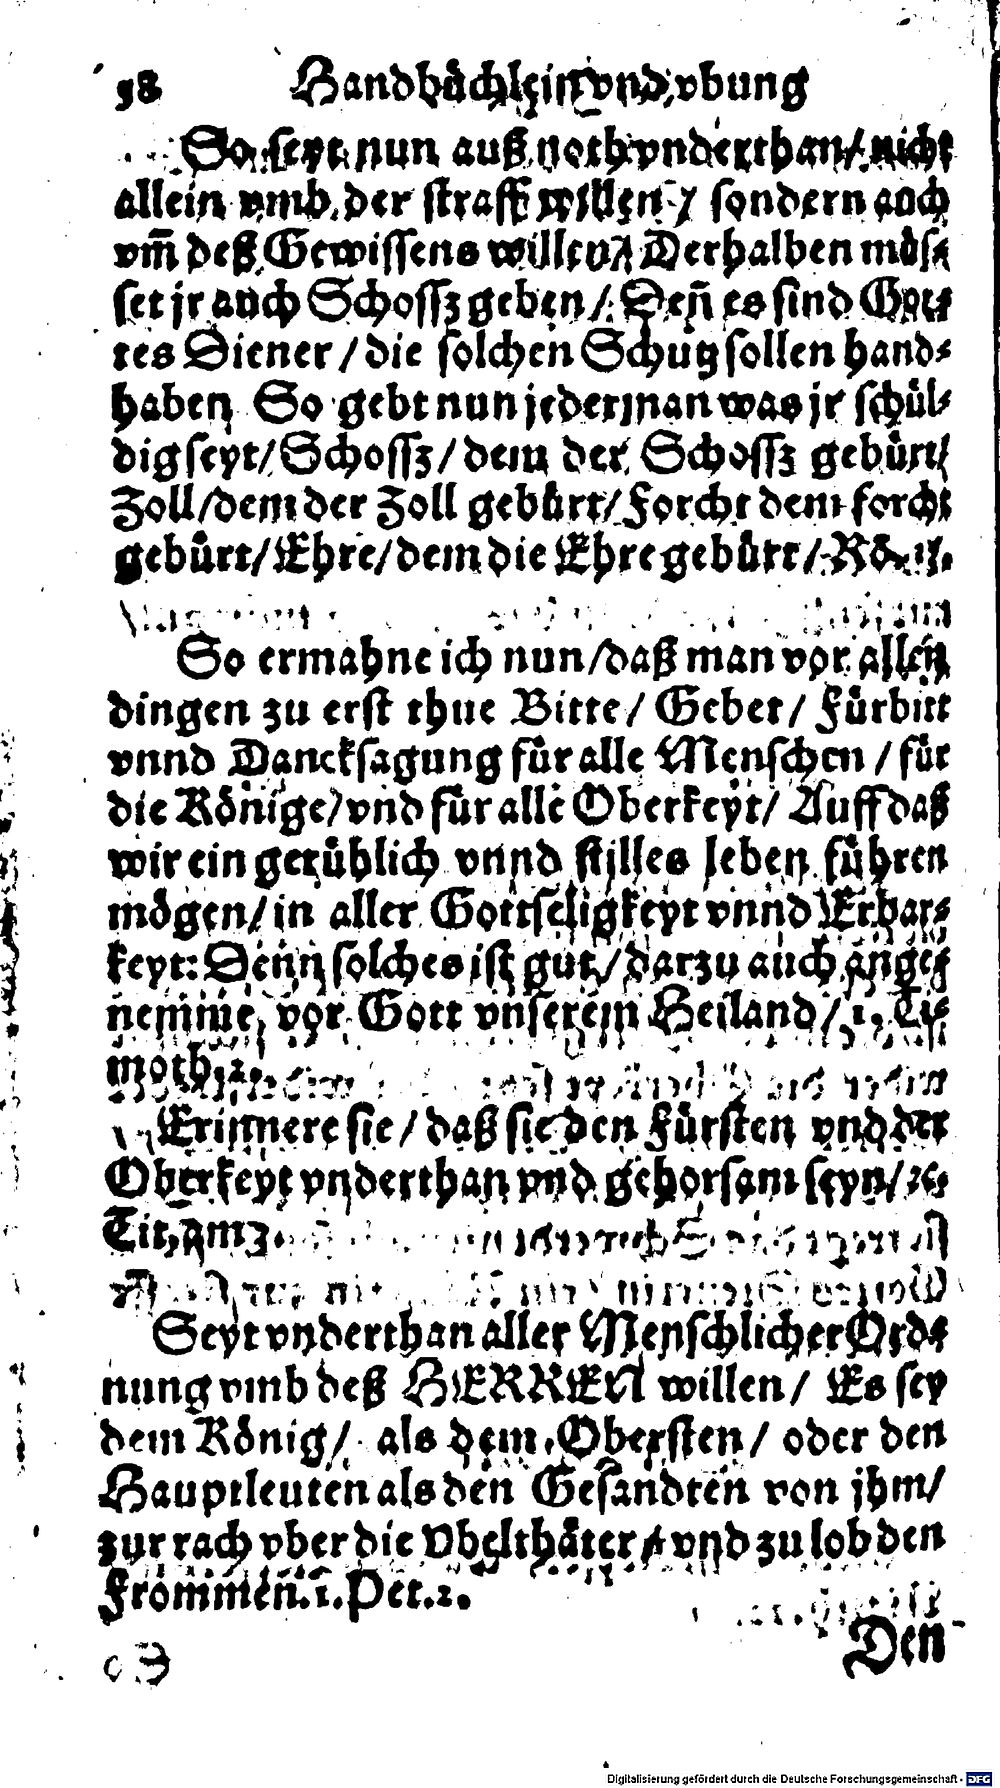 98 Handbůchlein vnd vbung
So seyt nun auß noth vnderthan / nicht
allein vmb der straff willen / sondern auch
vm̃ deß Gewissens willen / Derhalben můs⸗
set jr auch Schossz geben / Den̄ es sind Got⸗
tes Diener / die solchen Schutz sollen hand⸗
haben So gebt nun jederman was jr schůl⸗
dig seyt / Schossz / dem der Schossz gebůrt /
Zoll / dem der Zoll gebůrt / Forcht dem forcht
gebůrt / Ehre / dem die Ehre gebůrt / Rȯ. 13.
So ermahne ich nun / daß man vor allen
dingen zu erst thue Bitte / Gebet / Fůrbitt
vnnd Dancksagung fůr alle Menschen / fůr
die Kȯnige / vnd fůr alle Oberkeyt / Auff daß
wir ein gerůhlich vnnd stilles leben fůhren
mȯgen / in aller Gottseligkeyt vnnd Erbar⸗
keyt: Denn solches ist gut / darzu auch ange⸗
nemme, vor Gott vnserem Heiland / 1. Ti⸗
moth. 2.
Erinnere sie / daß sie den Fůrsten vnd der
Oberkeyt vnderthan vnd gehorsam seyn / ꝛc.
Tit. am 3.
Seyt vnderthan aller Menschlicher Ord⸗
nung vmb deß HERREN willen / Es sey
dem Kȯnig / als dem Obersten / oder den
Hauptleuten als den Gesandten von jhm /
zur rach vber die Vbelthäter / vnd zu lob den
Frommen. 1. Pet. 2.
Den
Digitalisierung gefördert durch die Deutsche Forschungsgemeinschaft - DFG